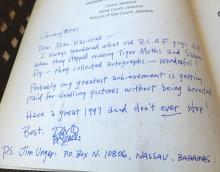 Court Jesters
More Court Jesters
Return of the Court Jesters
January 1997
Dear Dean
I always wondered what old R.C.A.F. guys did
when they stopped making Tiger Moths and
fly – they collected autographs – wonderful!
Probably my greatest achievement is getting
paid for doodling pictures without being arrested
Have a great 1997 and don't ever stop!
Best,
P.S. Jim Unger: P.O. Box N. 10806, NASSAU, BAHAMAS